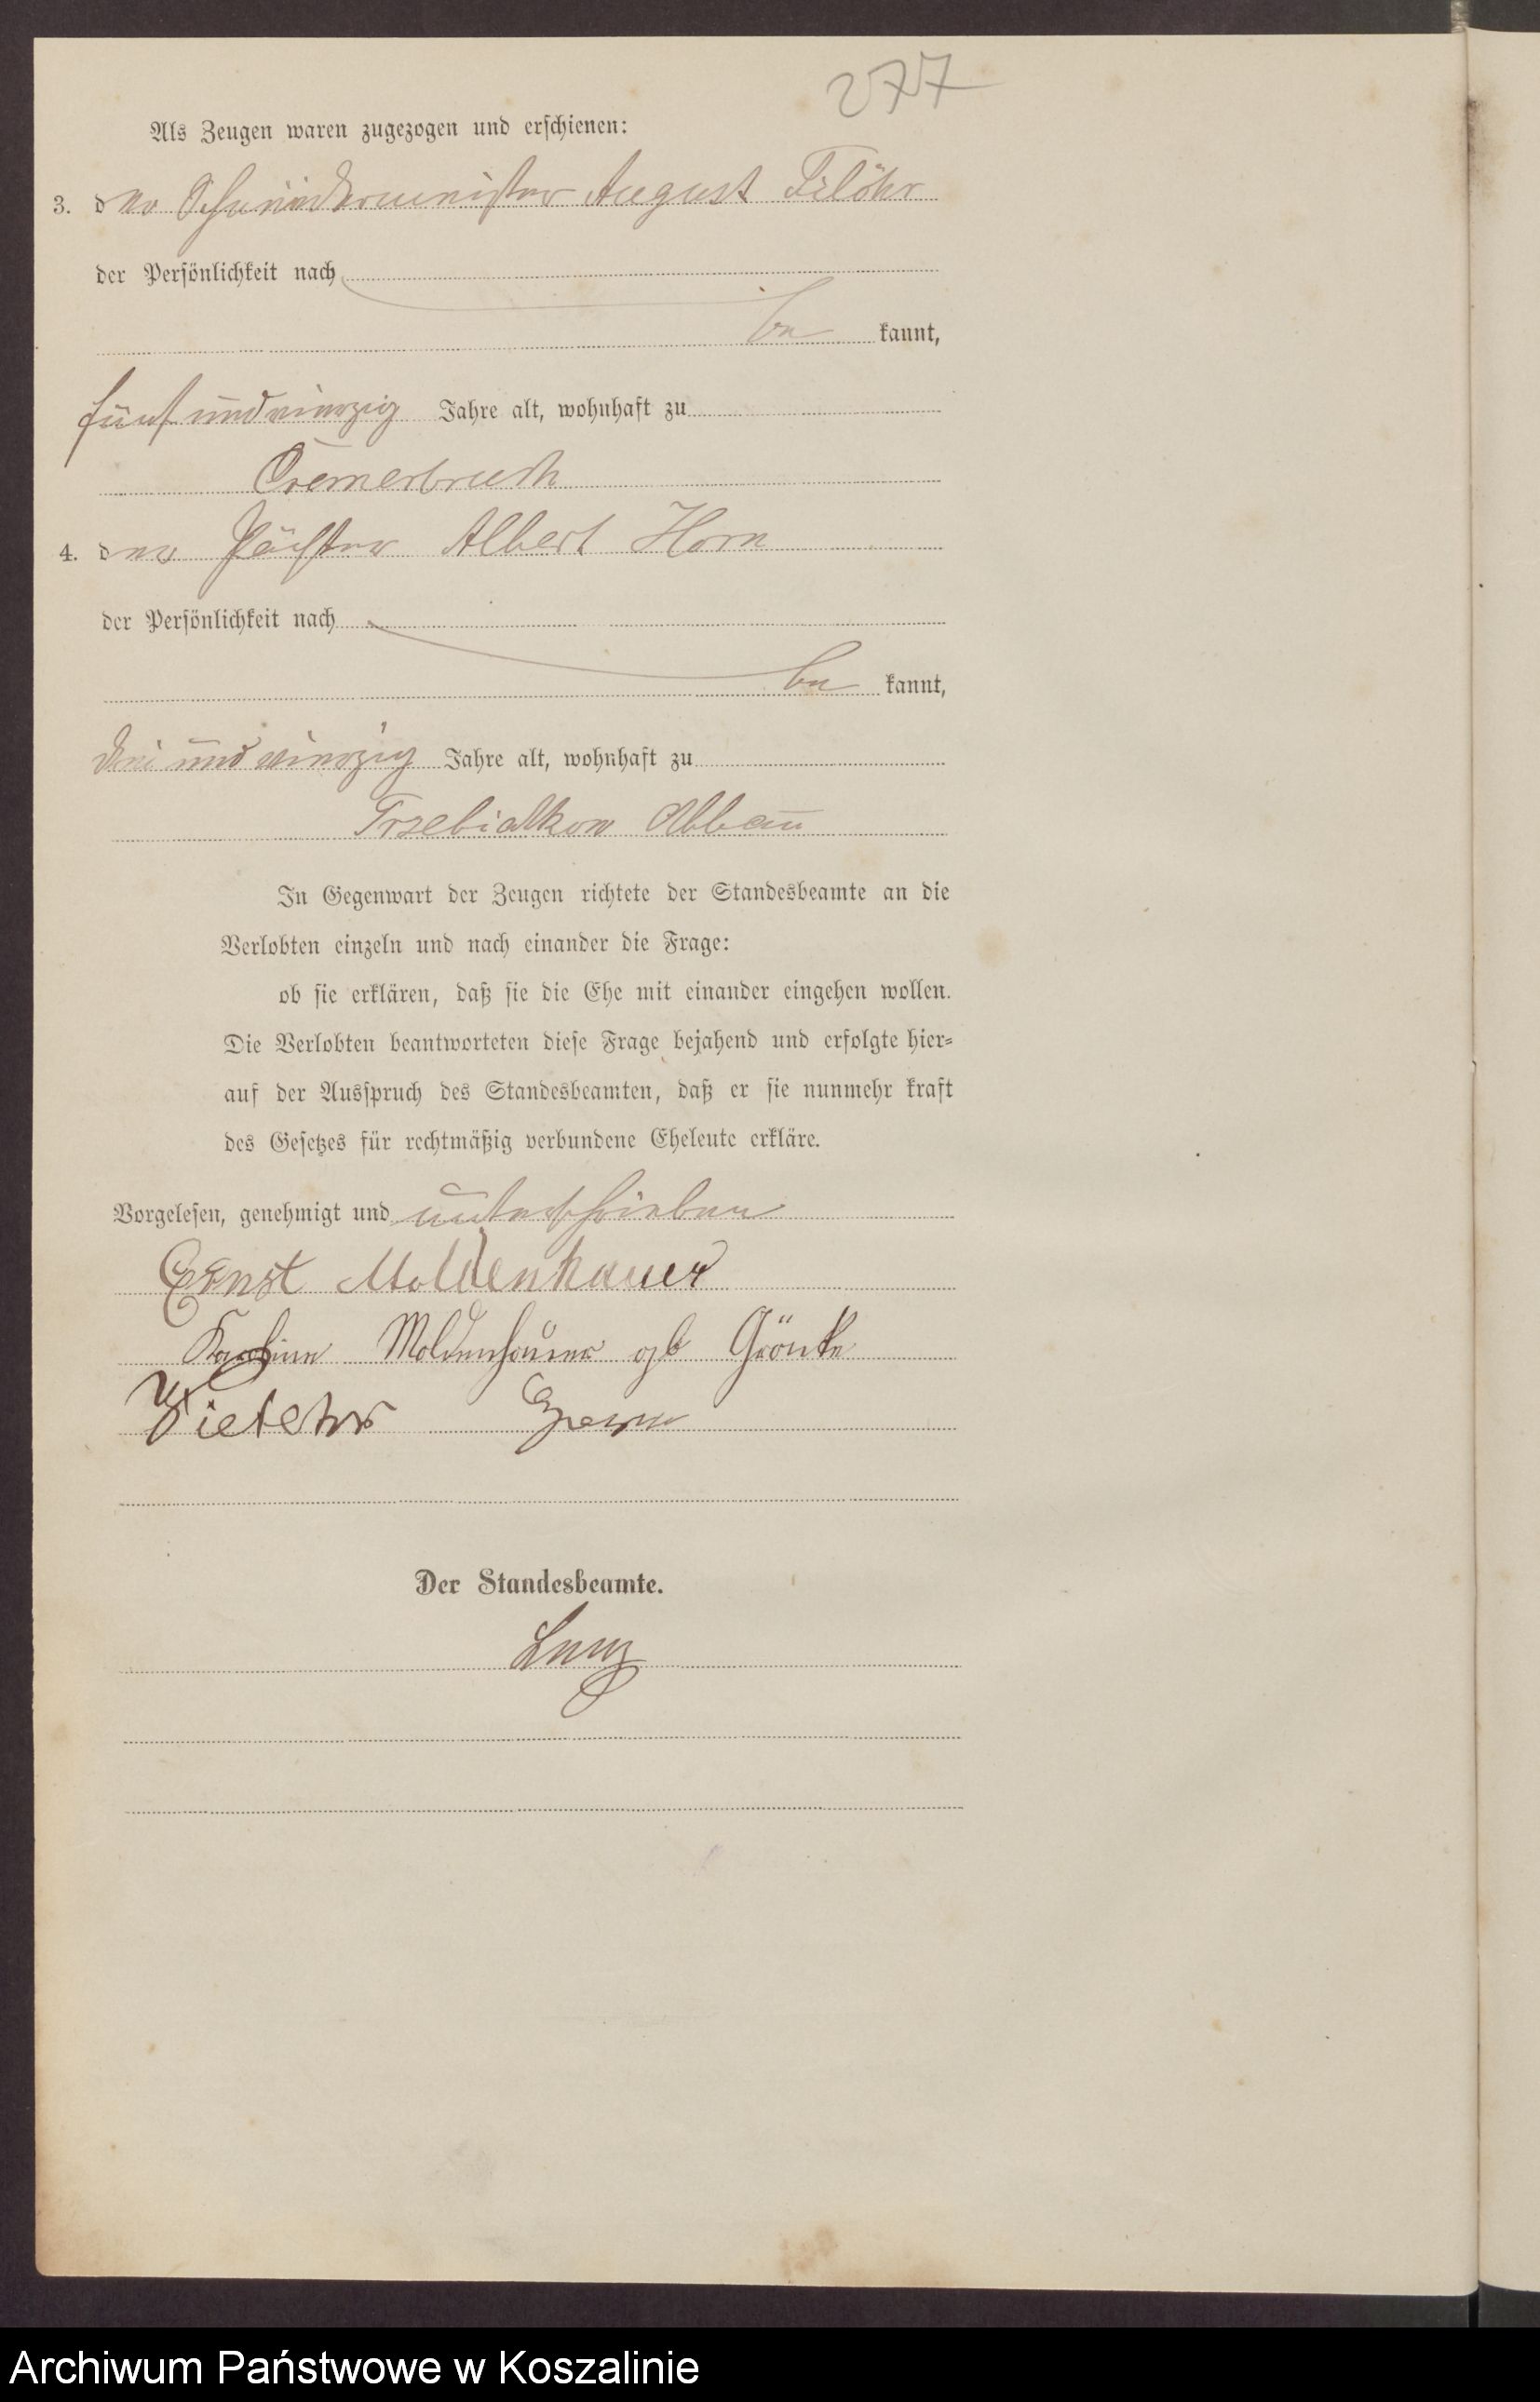 277
Als Zeugen waren zugezogen und erschienen:
3. der Schneidermeister August
der Persönlichkeit nach
be kannt,
fünf und vierzig Jahre alt, wohnhaft zu
Cremerbruch
4. der Pächter Albert Horn
der Persönlichkeit nach
be kannt,
drei und vierzig Jahre alt, wohnhaft zu
Trzebiatkow Abbau
In Gegenwart der Zeugen richtete der Standesbeamte an die
Verlobten einzeln und nach einander die Frage:
ob sie erklären, daß sie die Ehe mit einander eingehen wollen.
Die Verlobten beantworteten diese Frage bejahend und erfolgte hier-
auf der Ausspruch des Standesbeamten, daß er sie nunmehr kraft
des Gesetzes für rechtmäßig verbundene Eheleute erkläre.
Vorgelesen, genehmigt und unterschrieben
Ernst Moldenhauer
Karoline Moldenhauer gb Grönke
Der Standesbeamte.
Archiwum Państwowe w Koszalinie